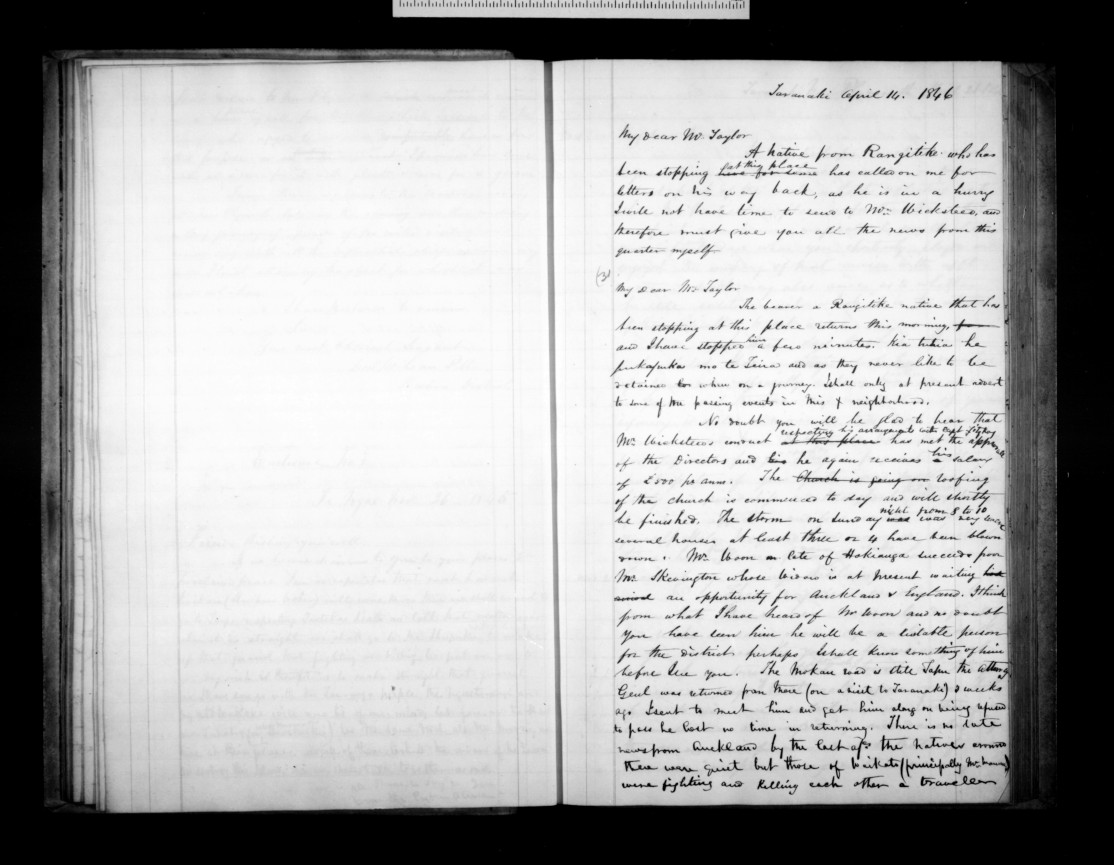 Taranaki April 14. 1846
My Dear Mr. Taylor
A native from Rangitike who has
been stopping here for some at this place has called on me for
letters on his way back, as he is in a hurry
I will not have time to send to Mr. Wicksteed, and
therefore must give you all the news from this
quarter myself
(3)
My Dear Mr. Taylor
The bearer a Rangitike native that has
been stopping at this place returns this morning,
and I have stopped him a few minutes. Kia tuhia he
pukapuka mo te Teira and as they never like to be
detained when on a journey. I shall only at present advert
to some of the passing events in this & neighborhood.
No doubt you will be glad to hear that
Mr. Wicksteeds conduct at this place respecting his arrangements with Capt. Fitzroy has met the approval
of the Directors and his he again receives his salary
of £500 pr ann. The Church is going on roofing
of the church is commenced to day and will shortly
be finished. The storm on Sunday was night from 8 to 10 was very severe
several houses at least three or 4 have been blown
down. Mr. Woon late of Hokianga succeeds poor
Mr. Skevington whose widow is at present waiting
an opportunity for Auckland & England. I think
from what I have heard of Mr Woon and no doubt
you have seen him he will be a suitable person
for the district perhaps I shall know something of him
before I see you. The Mokau road is still Tapu the Attorney
Genl was returned from there (on a visit to Taranaki) 3 weeks
ago I sent to meet him and get him along on being refused
to pass he lost no time in returning. There is no late
news from Auckland by the last acts the natives around
there were quiet but those of Waikato (principally
were fighting and killing each other a traveller